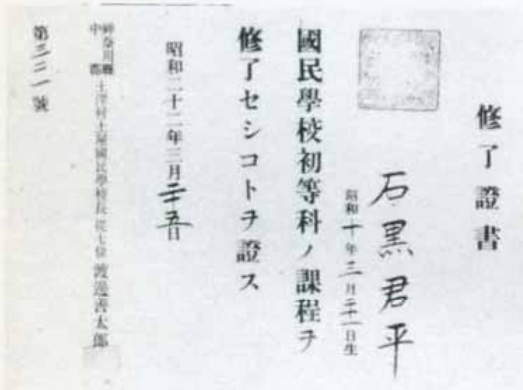 修了證書
石黒君平
昭和十年三月二十一日生
國民學校初等科ノ課程ヲ
修了セシコトヲ證ス
昭和二十二年三月二十五日
神奈川縣中郡土澤村土屋國民學校長從七位 渡邉善太郎
第三二一號